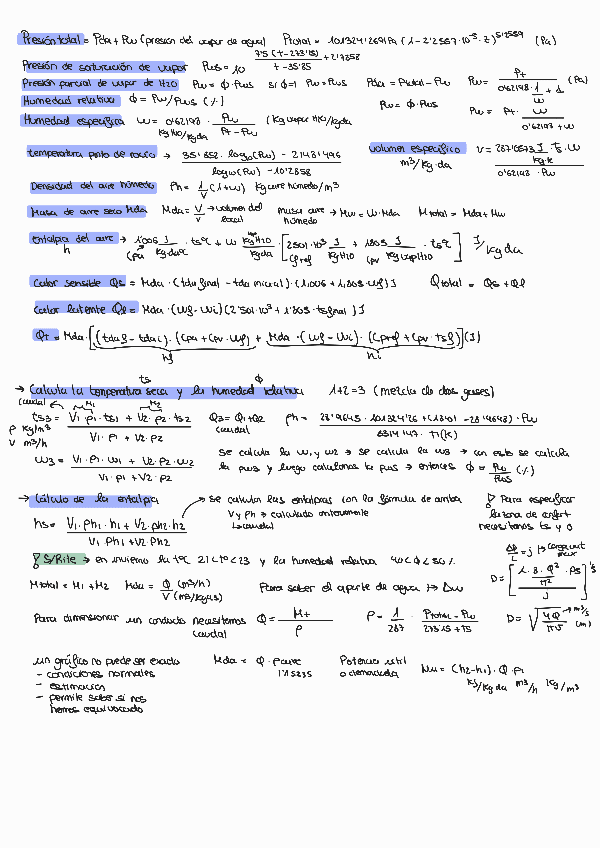 Presión total = Pda + Pw (presión del vapor de agua) Ptotal = 101324'2691Pa (1-2'2557·10⁻⁵·z)^5'2559 (Pa)
Presión de saturación de vapor Pws = 10^(7'5(t-273'15)/(t-35'85) + 2'7858)
Presión parcial de vapor de H2O Pw = ϕ·Pws si ϕ=1 Pw=Pws Pda = Ptotal - Pw Pw = Pt / (0'62198·1/w + 1) (Pa)
Humedad relativa ϕ = Pw/Pws (%) Pw = ϕ·Pws Pw = Pt· w / (0'62198+w)
Humedad específica w = 0'62198 · Pw / (Pt - Pw) (kg vapor H2O/kgda)
kg H2O/kgda
temperatura punto de rocío → (35'852·log10(Pw) - 2148'1496) / (log10(Pw) - 10'2858) volumen específico
m³/kg·da
Densidad del aire húmedo ρh = 1/V (1+w) kg aire húmedo/m³
Masa de aire seco Mda Mda = V/v → volumen del local masa aire húmedo → Mw = W·Mda Mtotal = Mda + Mw
Entalpía del aire → 1'006 J/kgdaºC · tsºC + w kgH2O/kgda · [2501·10³ J/kgH2O + 1'805 J/kg vapH2O · tsºC] J/kgda
h (Cpa Cpref Cpv
Calor sensible Qs = Mda·(tda final - tda inicial)·(1,006+1,805·wf) J Qtotal = Qs + Ql
Calor latente Ql = Mda·(wf - wi)(2'501·10³ + 1'805·tsfinal) J
QT = Mda·[(tdaf - tdai)·(Cpa + Cpv·wf) + Mda·(wf - wi)·(Cpref + Cpv·tsf)] (J)
hf hi
ts ϕ
→ Calcula la temperatura seca y la humedad relativa 1+2=3 (mezcla de dos gases)
caudal M1 M2
ts3 = (V1·ρ1·ts1 + V2·ρ2·ts2) / (V1·ρ1 + V2·ρ2) Q3 = Q1+Q2 ρh =
ρ kg/m³ caudal
V m³/h
w3 = (V1·ρ1·w1 + V2·ρ2·w2) / (V1·ρ1 + V2·ρ2) se calcula w1 y w2 → se calcula w3 → con esto se calcula
la pw3 y luego calculamos la pws → entonces ϕ = Pw/Pws (%)
→ Cálculo de la entalpía → se calculan las entalpías con la fórmula de arriba ! Para especificar
hs = (V1·ρh1·h1 + V2·ρh2·h2) / (V1·ρh1 + V2·ρh2) V y ρh → calculado anteriormente la zona de confort
↳ caudal necesitamos ts y ϕ
! S/Rite → en invierno la tºC 21<tº<23 y la humedad relativa 40<ϕ<50%
Mtotal = M1 + M2 Mda = Q (m³/h) / V (m³/kg) Para saber el aporte de agua ↦ Δw
Para dimensionar un conducto necesitamos Q = Mt/ρ ρ = 1/287 · (Ptotal - Pw)/(273'15+ts) D = √(4Q/πv) → m³/s (m)
caudal
un gráfico no puede ser exacto Mda = Q·ρaire Potencia útil Nu = (h2-h1)·Q·ρ1
- condiciones normales o demandada kJ/kg da m³/h kg/m³
- estimación
- permite saber si nos
hemos equivocado